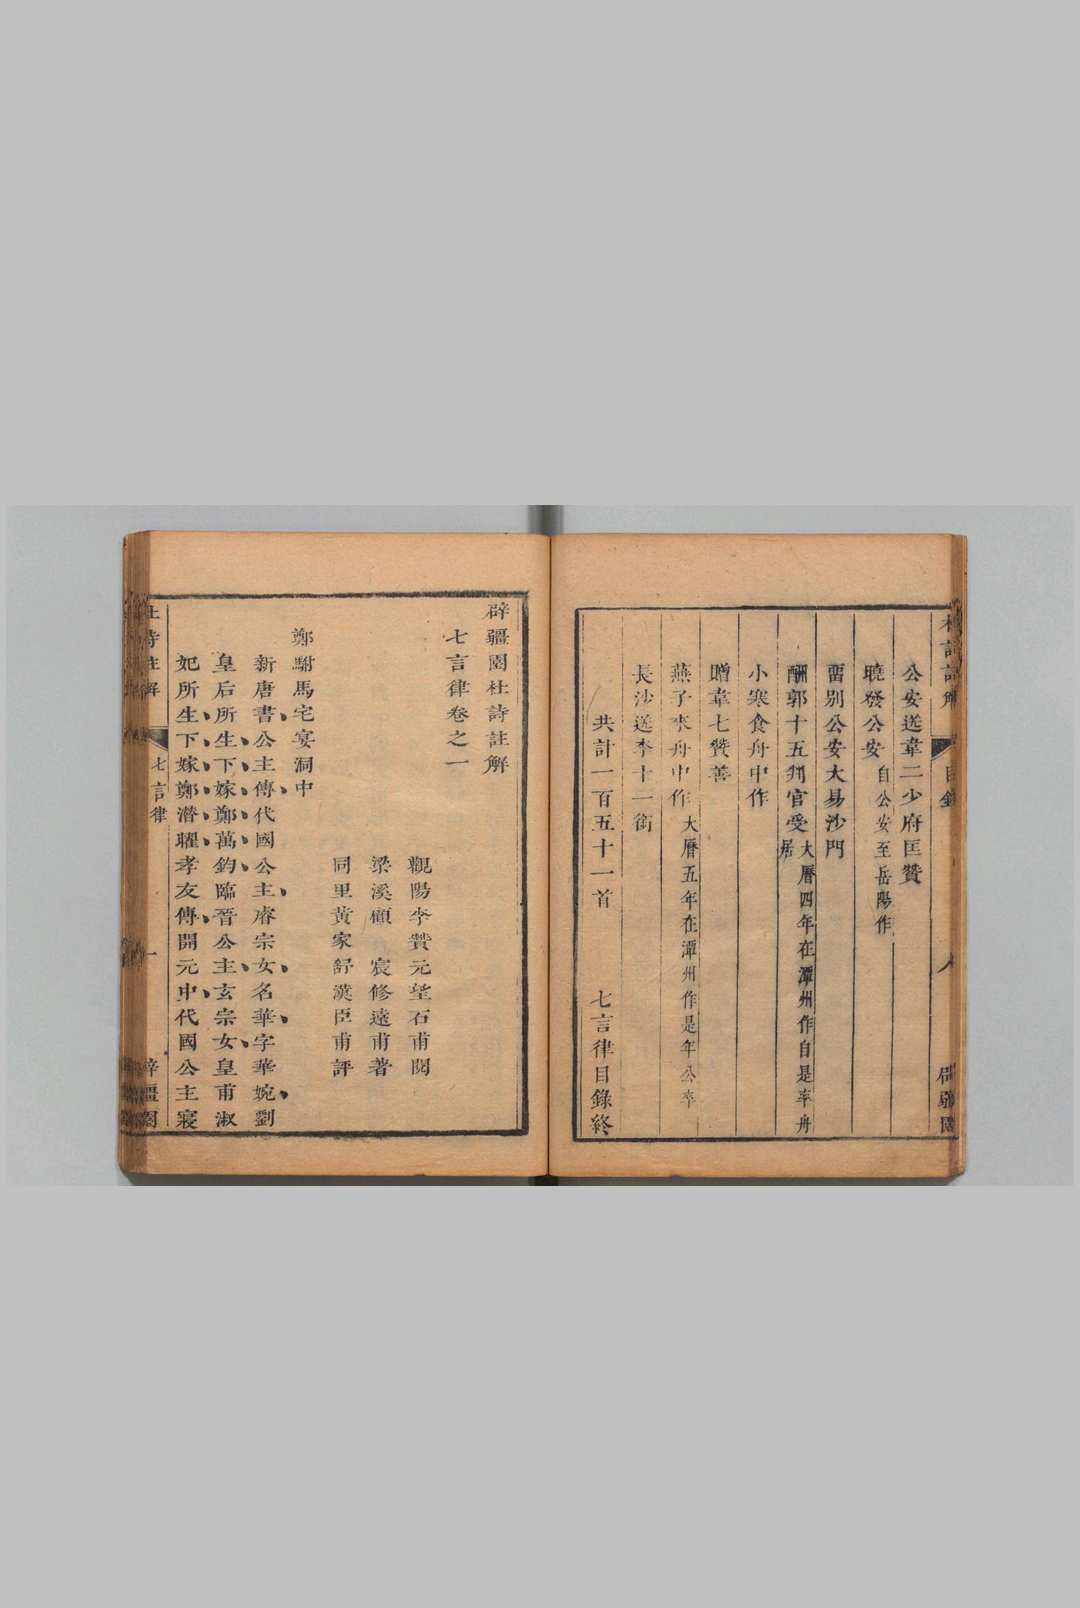 公安送韋二少府匡贊
曉發公安 自公安至岳陽作
留別公安大易沙門
酬郭十五判官受 大曆四年在潭州作自是率舟
居
小寒食舟中作
贈韋七贊善
燕子來舟中作 大曆五年在潭州作是年公卒
長沙送李十一銜
共計一百五十一首 七言律目錄終
辟疆園杜詩註解
七言律卷之一
觀陽李贊元望石甫閱
梁溪顧宸修遠甫著
同里黃家舒漢臣甫評
鄭駙馬宅宴洞中
新唐書公主傳代國公主睿宗女名華字華婉劉
皇后所生下嫁鄭萬鈞臨晉公主玄宗女皇甫淑
妃所生下嫁鄭潛曜孝友傳開元中代國公主寢
杜詩註解 七言律 一 辟疆園